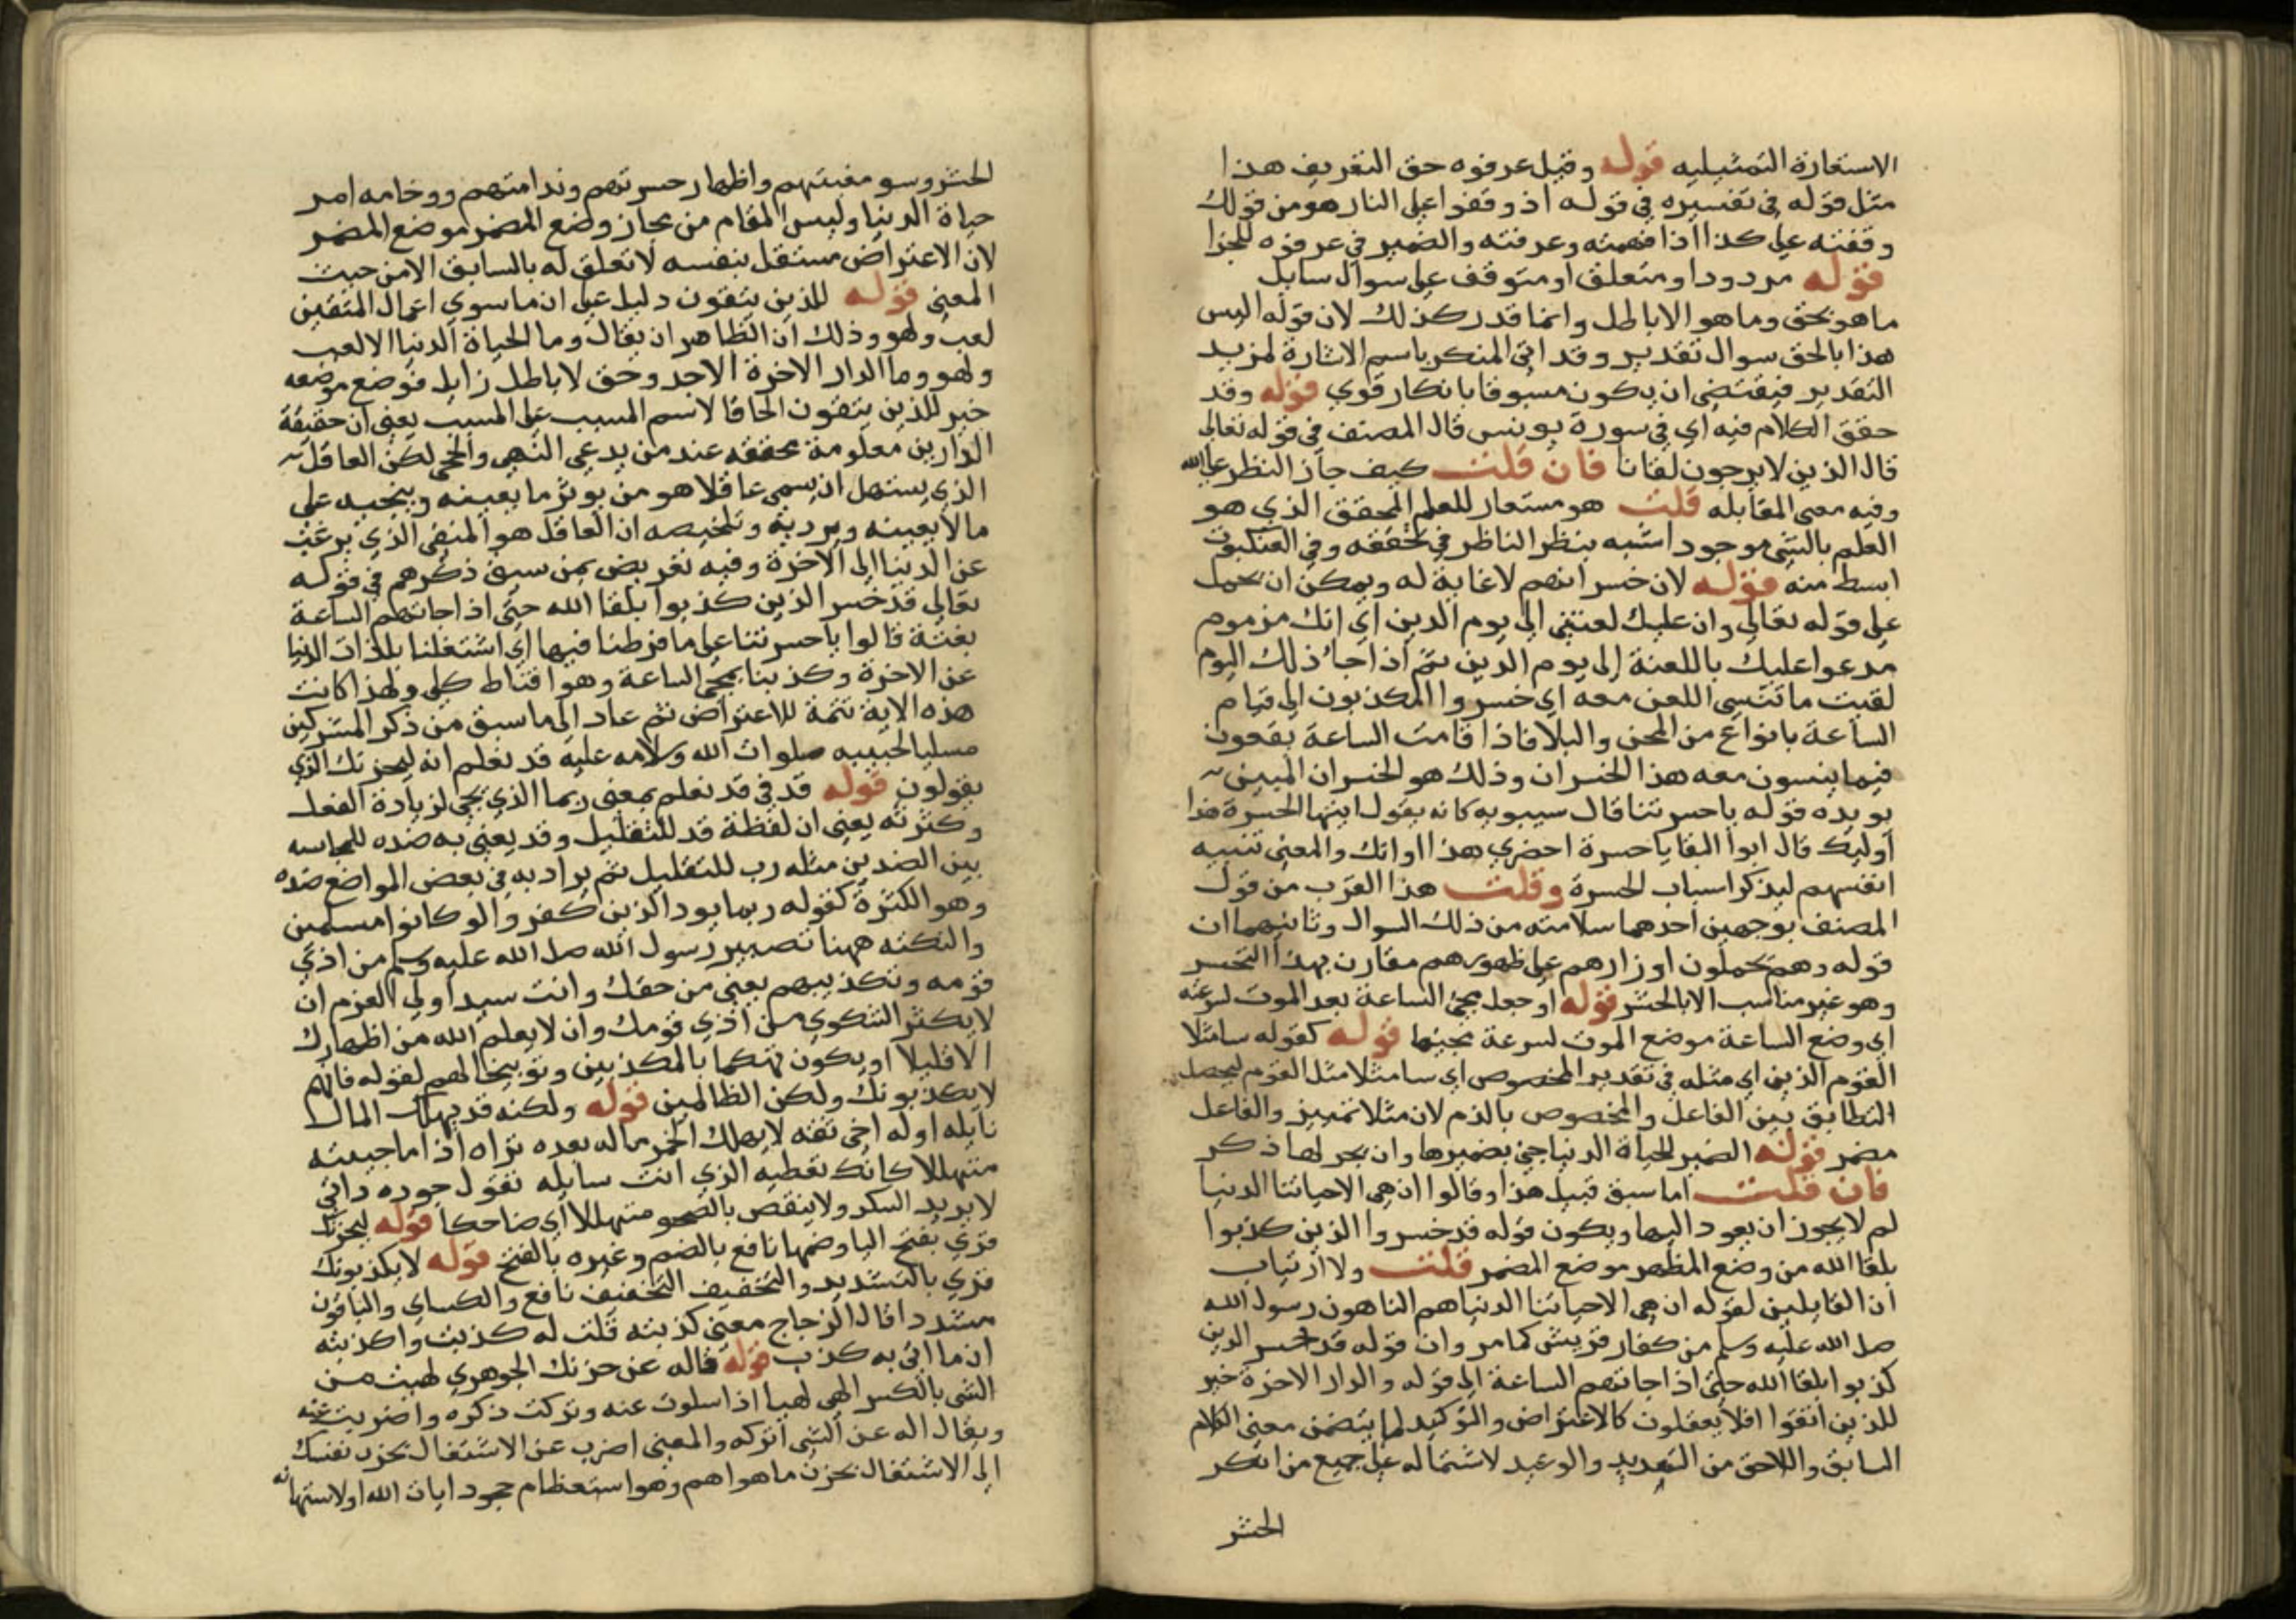 الاستعارة التمثيليه قوله وقيل عرفوه حق التعريف هذا
مثل قوله في تفسيره في قوله اذ وقفوا على النار هو من قولك
وقفته على كذا اذا فهمته وعرفته والضمير في عرفوه للجزا
قوله مردودا ومتعلق او متوقف على سوال سايل
ما هو بحق وما هو الا باطل وانما قدر كذلك لان قوله اليس
هذا بالحق سوال تقدير وقد اتى المنكر باسم الاشارة لمزيد
التقدير فيقتضي ان يكون مسبوقا بانكار قوي قوله وقد
حقق الكلام فيه اي في سورة يونس قال المصنف في قوله تعالى
قال الذين لا يرجون لقانا فان قلت كيف جاز النظر على الله
وفيه معنى المقابله قلت هو مستعار للعلم المحقق الذي هو
العلم بالشي موجودا شبه بنظر الناظر في تحققه وفي العنكبوت
ابسط منه قوله لان خسرانهم لا غاية له ويمكن ان تحمل
على قوله تعالى وان عليك لعنتي الى يوم الدين اي انك مذموم
مدعوا عليك باللعنة الى يوم الدين ثم اذا جاء ذلك اليوم
لقيت ما تنسى اللعن معه اي خسروا المكذبون الى قيام
الساعة بانواع من المحن والبلا فاذا قامت الساعة يقعون
فيما ينسون معه هذا الخسران وذلك هو الخسران المبين
يويده قوله يا حسرتنا قال سيبويه كانه يقول ايتها الحسرة هذا
اوليك قال ابوا البقا يا حسرة احضري هذا اوانك والمعنى تنبيه
انفسهم ليذكر اسباب الحسرة وقلت هذا اقرب من قول
المصنف بوجهين احدهما سلامته من ذلك السوال وثانيهما ان
قوله وهم يحملون اوزارهم على ظهورهم مقارن بهذا التحسر
وهو غير مناسب الا بالحشر قوله او جعل مجي الساعة بعد الموت لسرعته
اي وضع الساعة موضع الموت لسرعة مجيها قوله كقوله سا مثلا
القوم الذين اي مثله في تقدير المخصوص اي سا مثلا مثل القوم ليحصل
التطابق بين الفاعل والمخصوص بالذم لان مثلا تمييز والفاعل
مضمر قوله الضمير للحياة الدنيا جي بضميرها وان يجر لها ذكر
فان قلت اما سبق قبيل هذا وقالوا ان هي الا حياتنا الدنيا
لم لا يجوز ان يعود اليها ويكون قوله قد خسروا الذين كذبوا
بلقا الله من وضع المظهر موضع المضمر قلت ولا ارتياب
ان القايلين لقوله ان هي الا حياتنا الدنيا هم الناهون رسول الله
صلى الله عليه وسلم من كفار قريش كما مر وان قوله قد خسر الذين
كذبوا بلقا الله حتى اذا جاتهم الساعة الى قوله والدار الاخرة خير
للذين اتقوا افلا يعقلون كالاعتراض والتوكيد لما يتضمن معنى الكلام
السابق واللاحق من التهديد والوعيد لاشتماله على جميع من انكر
الحشر
الحشر وسو مغبتهم واظهار حسرتهم وندامتهم ووخامه امر
حياة الدنيا وليس المقام من مجاز وضع المضمر موضع المضمر
لان الاعتراض مستقل بنفسه لا تعلق له بالسابق الا من حيث
المعنى قوله للذين يتقون دليل على ان ما سوي اعمال المتقين
لعب ولهو وذلك ان الظاهر ان يقال وما الحياة الدنيا الا لعب
ولهو وما الدار الاخرة الا جد وحق لا باطل زايل فوضع موضعه
خير للذين يتقون الحاقا لاسم المسبب على السبب يعني ان حقيقة
الدارين معلومة محققه عند من يدعي النهى والحجى لكن العاقل
الذي يستهل ان يسمى عاقلا هو من يوثر ما يعينه وينجيه على
ما لا يعينه ويرديه وتلخيصه ان العاقل هو المتقي الذي يرغب
عن الدنيا الى الاخرة وفيه تعريض بمن سبق ذكرهم في قوله
تعالى قد خسر الذين كذبوا بلقا الله حتى اذا جاتهم الساعة
بغتة قالوا يا حسرتنا على ما فرطنا فيها اي اشتغلنا بلذات الدنيا
عن الاخرة وكذبنا بمجي الساعة وهو اقناط كلي ولهذا كانت
هذه الاية تتمة للاعتراض ثم عاد الى ما سبق من ذكر المشركين
مسليا لحبيبه صلوات الله وسلامه عليه قد نعلم انه ليحزنك الذي
يقولون قوله قد في قد نعلم بمعنى ربما الذي يجي لزيادة الفعل
وكثرته يعني ان لفظة قد للتقليل وقد يعني به ضده للمجانسه
بين الضدين مثله رب للتقليل ثم يراد به في بعض المواضع ضده
وهو الكثرة كقوله ربما يود الذين كفروا لو كانوا مسلمين
والنكته ههنا تصبير رسول الله صلى الله عليه وسلم من اذي
قومه وتكذيبهم يعني من حقك وانت سيد اولي العزم ان
لا يكثر الشكوي من اذي قومك وان لا يعلم الله من اظهارك
الا قليلا او يكون تهكما بالمكذبين وتوبيخا لهم لقوله فانهم
لا يكذبونك ولكن الظالمين قوله ولكنه قد يهلك المال
نايله اوله اخي ثقه لا يهلك الخمر ماله بعده تراه اذا ما جيته
متهللا كانك تعطيه الذي انت سايله تقول جوده ذاتي
لا يريد السكر ولا ينقص بالصحو متهللا اي ضاحكا قوله ليحزنك
قري بفتح اليا وضمها نافع بالضم وغيره بالفتح قوله لا يكذبونك
قري بالتشديد والتخفيف التخفيف نافع والكساي والباقون
مشددا قال الزجاج معنى كذبته قلت له كذبت واكذبته
ان ما اتى به كذب قوله فاله عن حزنك الجوهري لهيت من
الشي بالكسر الهى لهيا اذا سلوت عنه وتركت ذكره واضربت عنه
ويقال اله عن الشي اتركه والمعنى اضرب عن الاشتغال بحزن نفسك
الى الاشتغال بحزن ما هو اهم وهو استعظام جحود ايات الله او لاستهانه